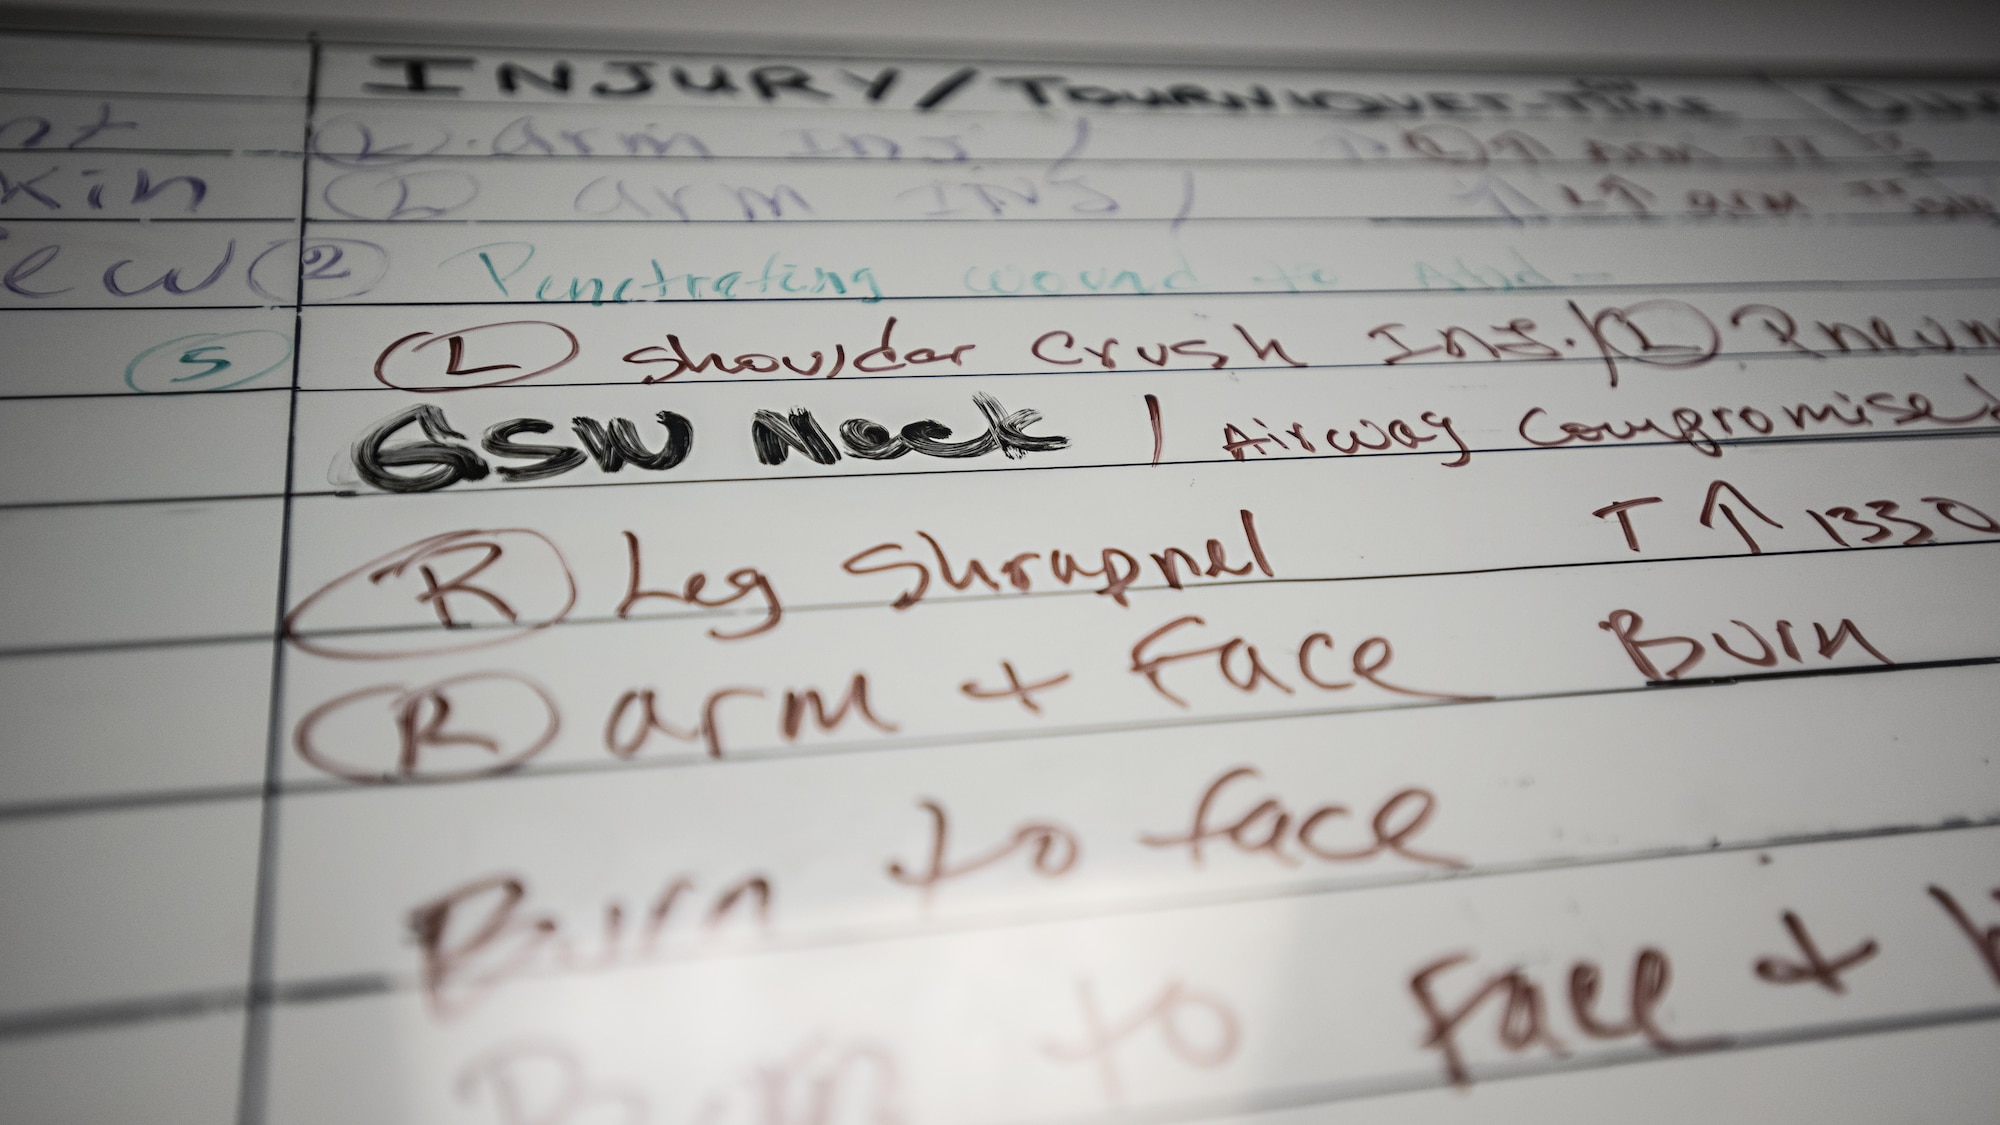 INJURY/TOURNIQUET-TIME
L arm INJ /
kin L arm INJ / ↑ L↑ arm
ew 2 Penetrating wound to Abd-
5 L Shoulder Crush Inj./ L Pneum
GSW Neck / Airway Compromised
R Leg Shrapnel T↑ 1330
R arm + Face Burn
Burn to face
Burn to Face +